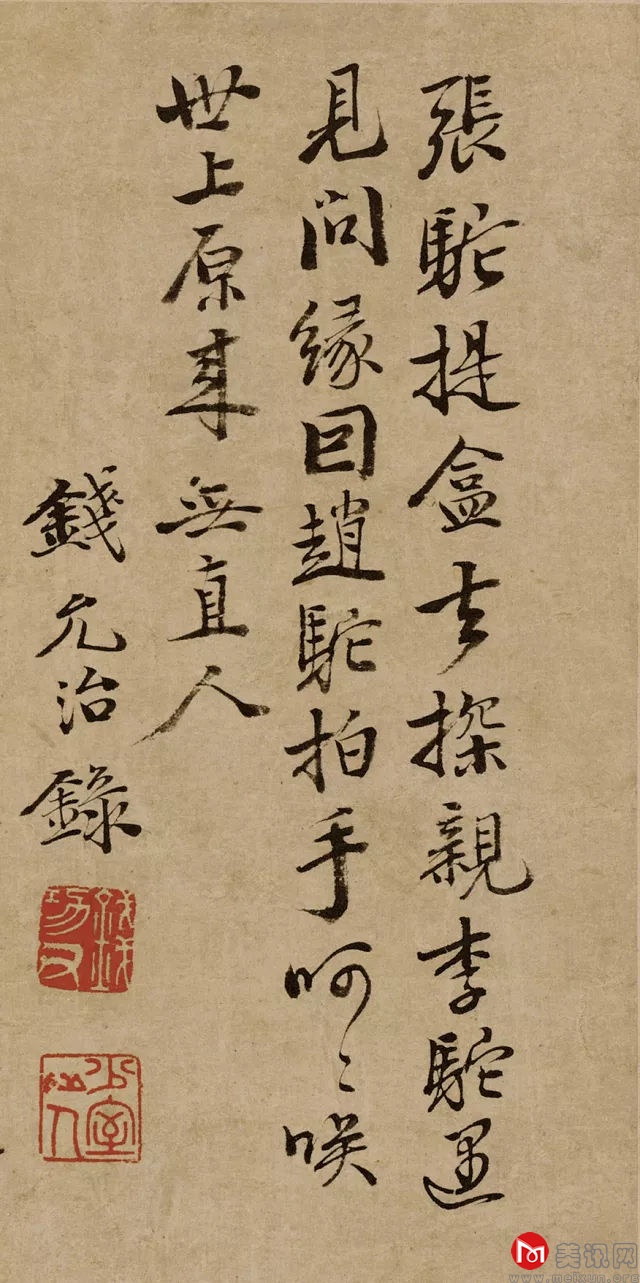 張駝提盒去探親李駝遇
見問緣因趙駝拍手呵〻咲
世上原来無直人
錢允治錄
美讯网
www.meixun.cn